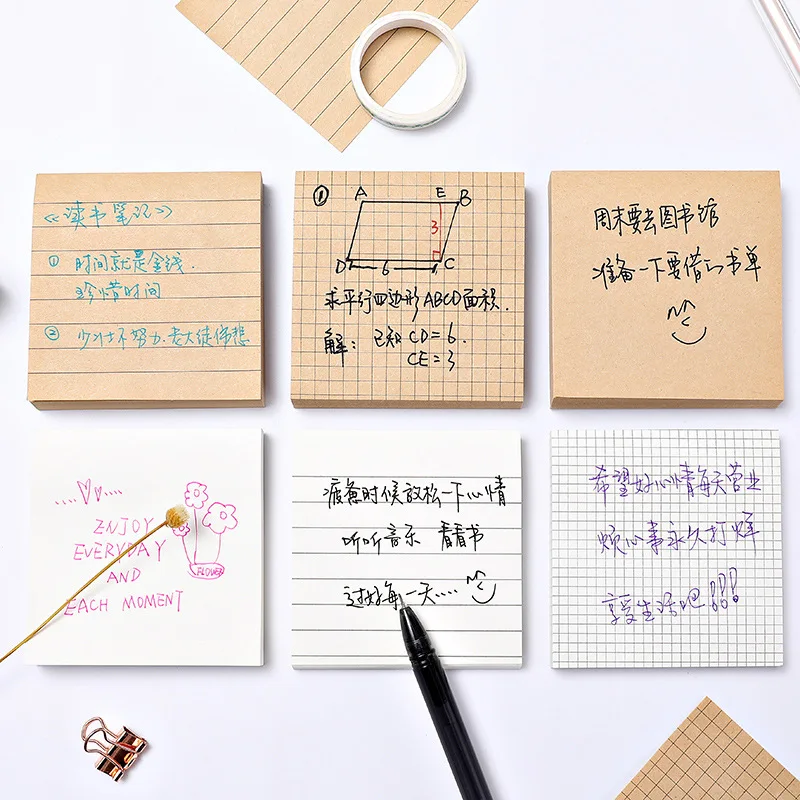 《读书笔记》
① 时间就是金钱.
珍惜时间
② 少壮不努力.老大徒伤悲
① A E B
3
D 6 C
求平行四边形ABCD面积.
解: 已知 CD=6.
CE=3
周末要去图书馆
准备一下要借的书单
ENJOY
EVERYDAY
AND
EACH MOMENT
FLOWER
疲惫时候放松一下心情
听听音乐 看看书
过好每一天....
希望好心情每天营业
烦心事永久打烊
享受生活吧!!!